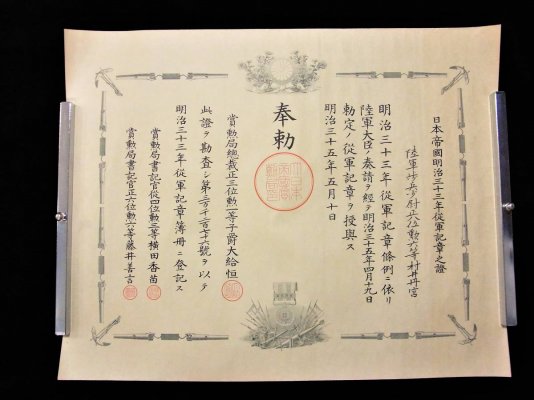 日本帝國明治三十三年従軍記章之證
陸軍歩兵少尉正八位勲六等村井丹宮
明治三十三年従軍記章條例ニ依リ
陸軍大臣ノ奏請ヲ経テ明治三十五年四月十九日
勅定ノ従軍記章ヲ授與ス
明治三十五年五月十日
奉勅
賞勲局総裁正三位勲一等子爵大給恒
此證ヲ勘査シ第二万千二百七十六號ヲ以テ
明治三十三年従軍記章簿冊ニ登記ス
賞勲局書記官従四位勲三等横田香苗
賞勲局書記官正六位勲六等藤井善言